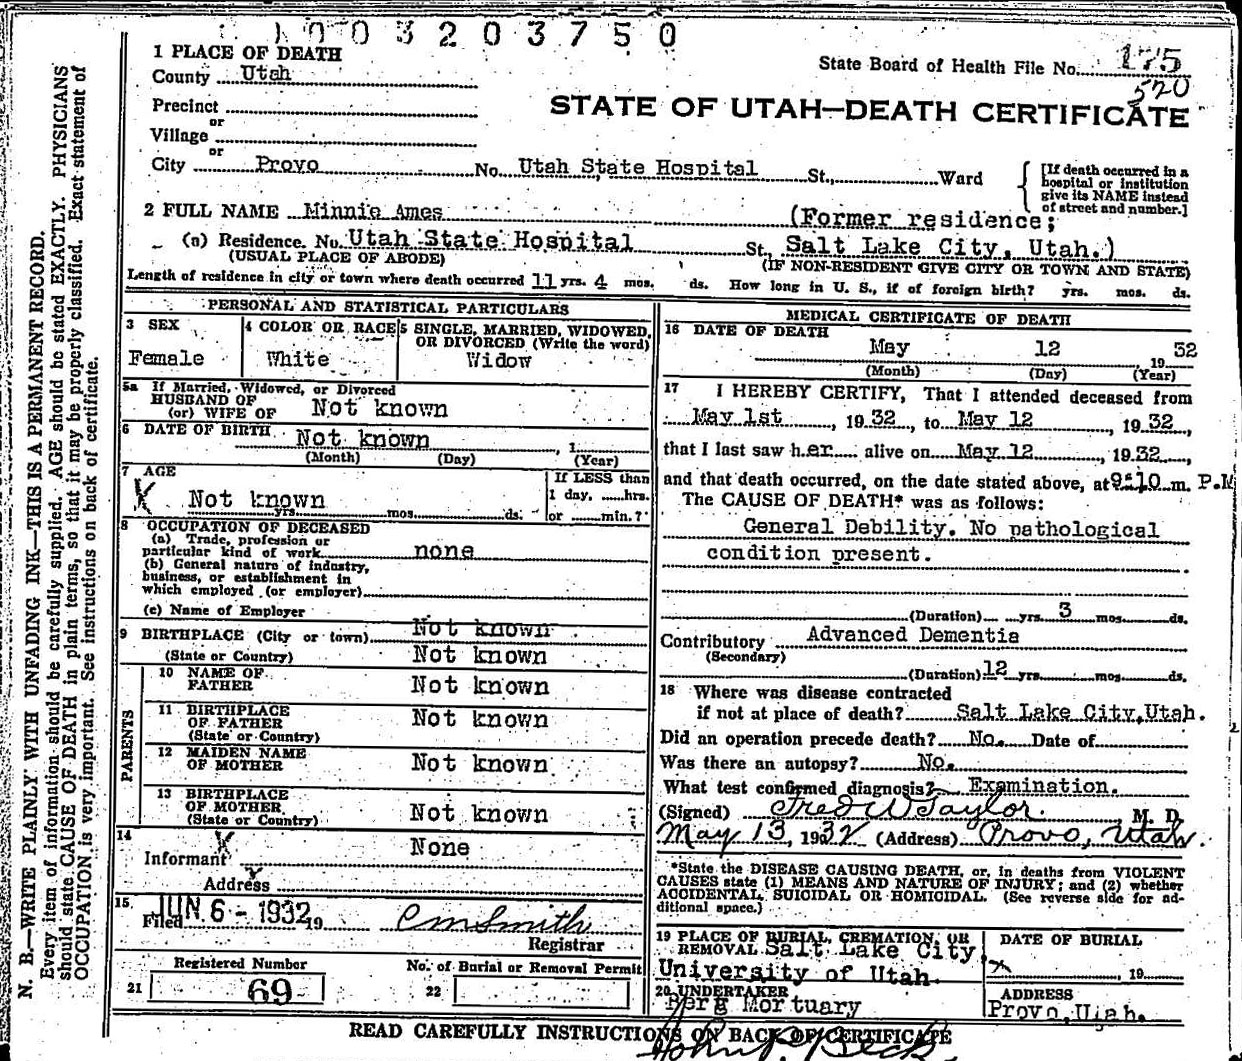 1003203750
1 PLACE OF DEATH
State Board of Health File No. 175
570
County Utah
STATE OF UTAH—DEATH CERTIFICATE
Precinct
or
Village
or
City Provo No. Utah State Hospital St., Ward
[If death occurred in a hospital or institution give its NAME instead of street and number.]
2 FULL NAME Minnie Ames (Former residence;
(a) Residence. No. Utah State Hospital St. Salt Lake City, Utah.)
(USUAL PLACE OF ABODE) (IF NON-RESIDENT GIVE CITY OR TOWN AND STATE)
Length of residence in city or town where death occurred 11 yrs. 4 mos. ds. How long in U. S., if of foreign birth? yrs. mos. ds.
PERSONAL AND STATISTICAL PARTICULARS
3 SEX
Female
4 COLOR OR RACE
White
5 SINGLE, MARRIED, WIDOWED,
OR DIVORCED (Write the word)
Widow
5a If Married, Widowed, or Divorced
HUSBAND OF
(or) WIFE OF Not known
6 DATE OF BIRTH Not known , 1
(Month) (Day) (Year)
7 AGE
X Not known
yrs. mos. ds.
If LESS than
1 day, hrs.
or min.?
8 OCCUPATION OF DECEASED
(a) Trade, profession or
particular kind of work none
(b) General nature of industry,
business, or establishment in
which employed (or employer)
(c) Name of Employer
9 BIRTHPLACE (City or town) Not known
(State or Country) Not known
PARENTS
10 NAME OF
FATHER Not known
11 BIRTHPLACE
OF FATHER Not known
(State or Country)
12 MAIDEN NAME
OF MOTHER Not known
13 BIRTHPLACE
OF MOTHER
(State or Country) Not known
14 X None
Informant
Address
15 JUN 6 - 1932
Filed 19 C M Smith
Registrar
Registered Number
21 69
No. of Burial or Removal Permit
22
MEDICAL CERTIFICATE OF DEATH
16 DATE OF DEATH
May 12 19 32
(Month) (Day) (Year)
17 I HEREBY CERTIFY, That I attended deceased from
May 1st , 19 32, to May 12 , 19 32,
that I last saw her alive on May 12 , 19 32,
and that death occurred, on the date stated above, at 9:10 m. P.M
The CAUSE OF DEATH* was as follows:
General Debility. No pathological
condition present.
(Duration) yrs. 3 mos. ds.
Contributory Advanced Dementia
(Secondary)
(Duration) 12 yrs. mos. ds.
18 Where was disease contracted
if not at place of death? Salt Lake City, Utah.
Did an operation precede death? No. Date of
Was there an autopsy? No.
What test confirmed diagnosis? Examination.
(Signed) Fred W Taylor. M. D.
May 13, 1932 (Address) Provo, Utah.
*State the DISEASE CAUSING DEATH, or, in deaths from VIOLENT
CAUSES state (1) MEANS AND NATURE OF INJURY; and (2) whether
ACCIDENTAL, SUICIDAL OR HOMICIDAL. (See reverse side for ad-
ditional space.)
19 PLACE OF BURIAL, CREMATION, OR
REMOVAL Salt Lake City,
University of Utah.
DATE OF BURIAL
X , 19
20 UNDERTAKER
Berg Mortuary
ADDRESS
Provo, Utah.
READ CAREFULLY INSTRUCTIONS ON BACK OF CERTIFICATE
John P. Beck
N. B.—WRITE PLAINLY WITH UNFADING INK—THIS IS A PERMANENT RECORD.
Every item of information should be carefully supplied. AGE should be stated EXACTLY. PHYSICIANS
should state CAUSE OF DEATH in plain terms, so that it may be properly classified. Exact statement of
OCCUPATION is very important. See instructions on back of certificate.